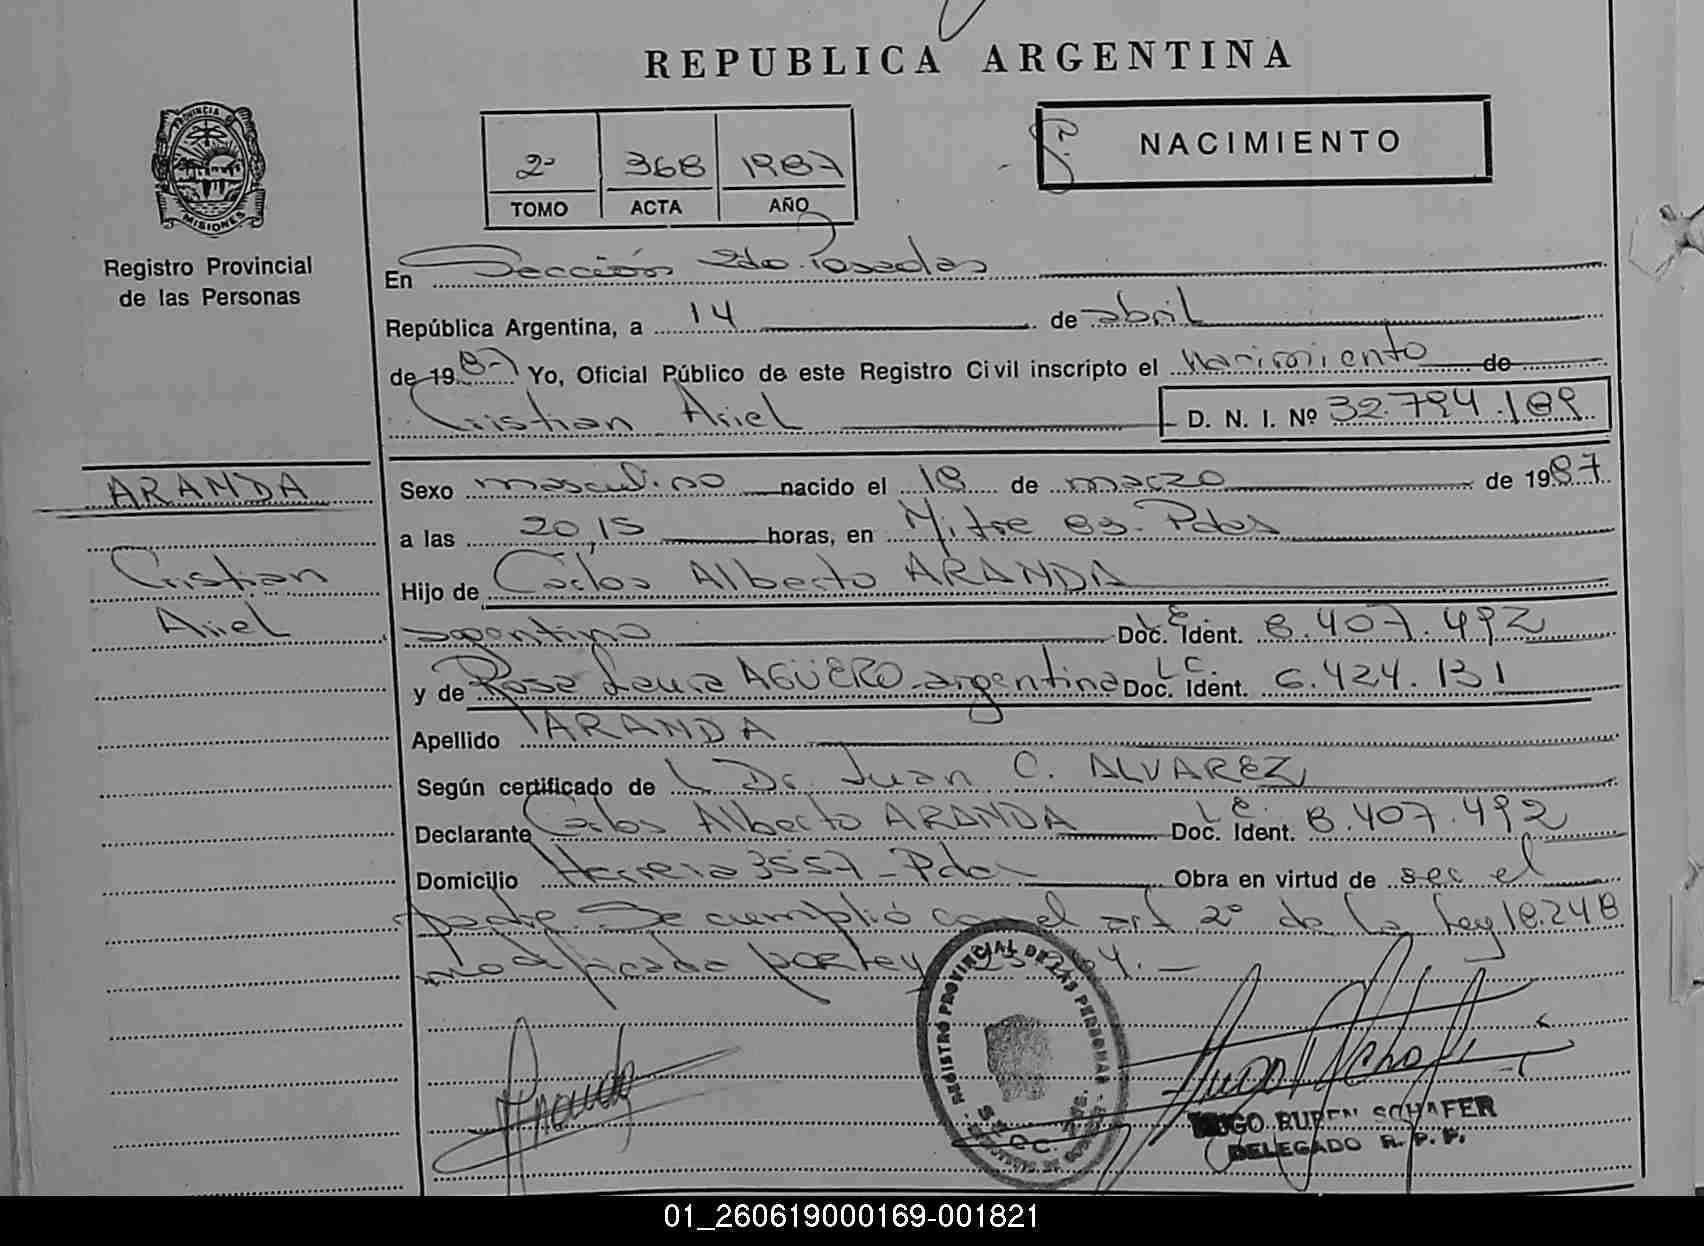 REPUBLICA ARGENTINA
PROVINCIA D
MISIONES
Registro Provincial
de las Personas
2º 368 1987
TOMO ACTA AÑO
NACIMIENTO
En Sección 2da. Posadas
República Argentina, a 14 de abril
de 1987 Yo, Oficial Público de este Registro Civil inscripto el Nacimiento de
Cristian Ariel D. N. I. Nº 32.794.189
ARANDA
Cristian
Ariel
Sexo masculino nacido el 18 de marzo de 1987
a las 20,15 horas, en Mitre es. Pdas
Hijo de Carlos Alberto ARANDA
argentino Doc. Ident. L.E. 8.407.492
y de Rosa Laura AGÜERO argentina Doc. Ident. L.C. 6.424.131
Apellido ARANDA
Según certificado de Dr. Juan C. ALVAREZ
Declarante Carlos Alberto ARANDA Doc. Ident. L.E. 8.407.492
Domicilio Herrera 3557 - Pdas Obra en virtud de ser el
padre. Se cumplió con el art 2º de la Ley 18.248
modificado por Ley
REGISTRO PROVINCIAL DE LAS PERSONAS
Aranda
HUGO RUBEN SCHAFER
DELEGADO R. P. P.
01_260619000169-001821